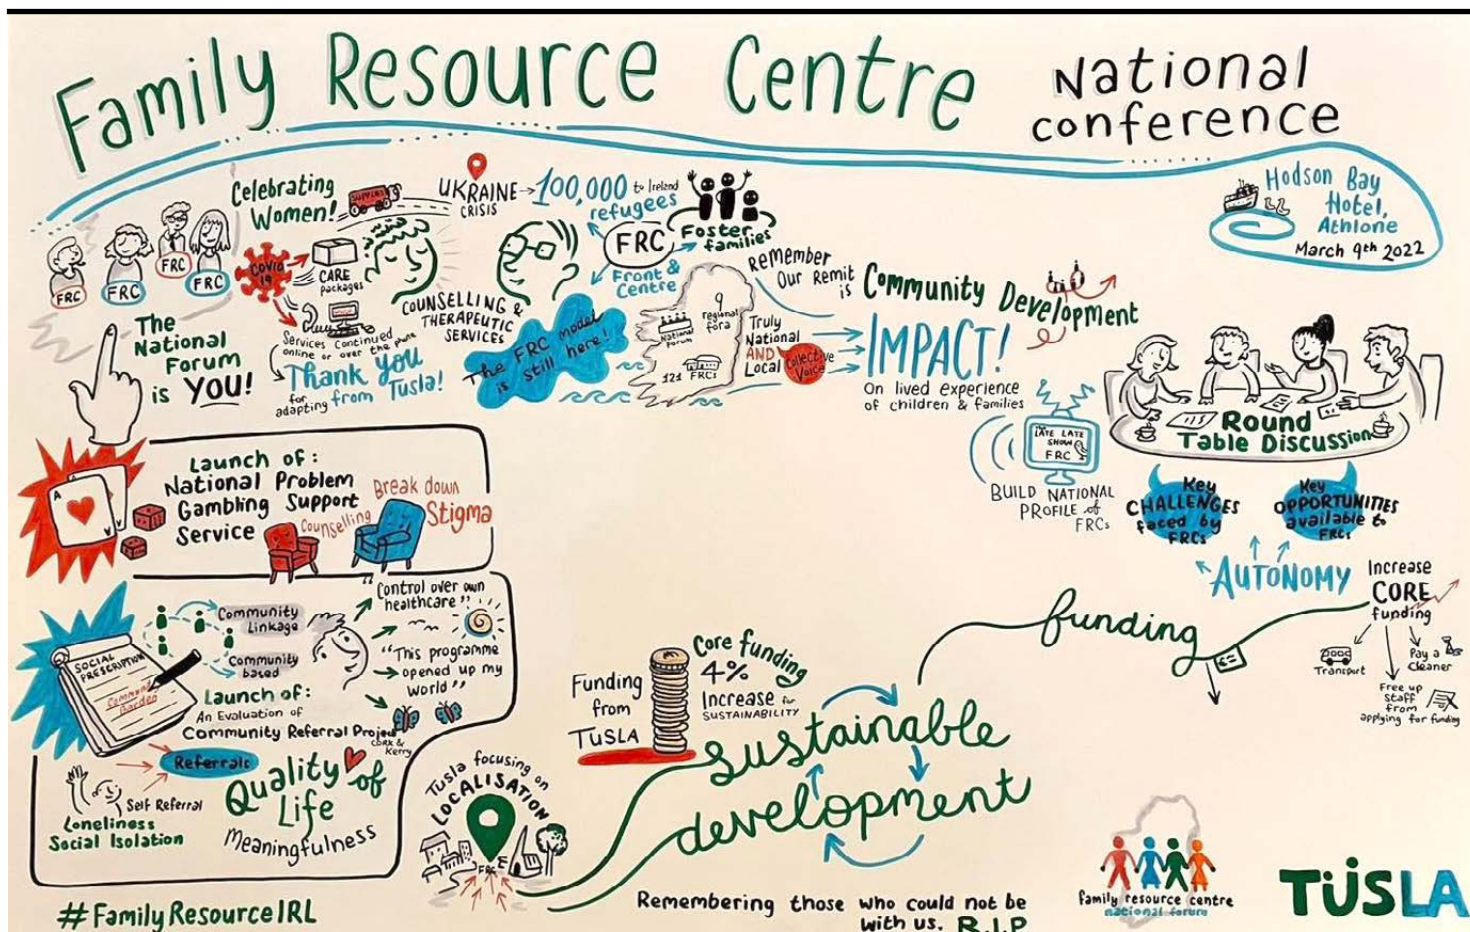 Family Resource Centre
National
conference
Hodson Bay
Hotel,
Athlone
March 9th 2022
Celebrating
Women!
FRC
FRC
FRC
FRC
The
National
Forum
is YOU!
SUPPLIES
Covid
19
CARE
packages
Services Continued
online or over the phone
Thank you
for
adapting
from Tusla!
COUNSELLING &
THERAPEUTIC
SERVICES
UKRAINE
CRISIS
100,000 to Ireland
refugees
FRC
Foster
families
Front &
Centre
The FRC model
is still here!
9
regional
fora
National
Forum
121 FRCs
Truly
National
AND
Local
Collective
Voice
Remember
Our Remit
is
Community Development
IMPACT!
On lived experience
of children & families
LATE LATE
SHOW
FRC
BUILD NATIONAL
PROFILE of
FRCs
Round
Table Discussion
Key
CHALLENGES
faced by
FRCs
Key
OPPORTUNITIES
available to
FRCs
AUTONOMY
Increase
CORE
funding
Transport
Pay a
Cleaner
Free up
Staff
from
applying for funding
funding
Launch of:
National Problem
Gambling Support
Service
A
Counselling
Break down
Stigma
SOCIAL
PRESCRIPTION
Community
Garden
Community
Linkage
Community
based
"Control over own
healthcare"
"This programme
opened up my
world"
Launch of:
An Evaluation of
Community Referral Project
Cork &
Kerry
Referrals
Self Referral
Loneliness
Social Isolation
Quality of
Life
Meaningfulness
Tusla focusing on
LOCALISATION
FRC
Funding
from
TUSLA
Core funding
4%
Increase for
SUSTAINABILITY
sustainable
development
#FamilyResourceIRL
Remembering those who could not be
with us. R.I.P
family resource centre
national forum
TÚSLA